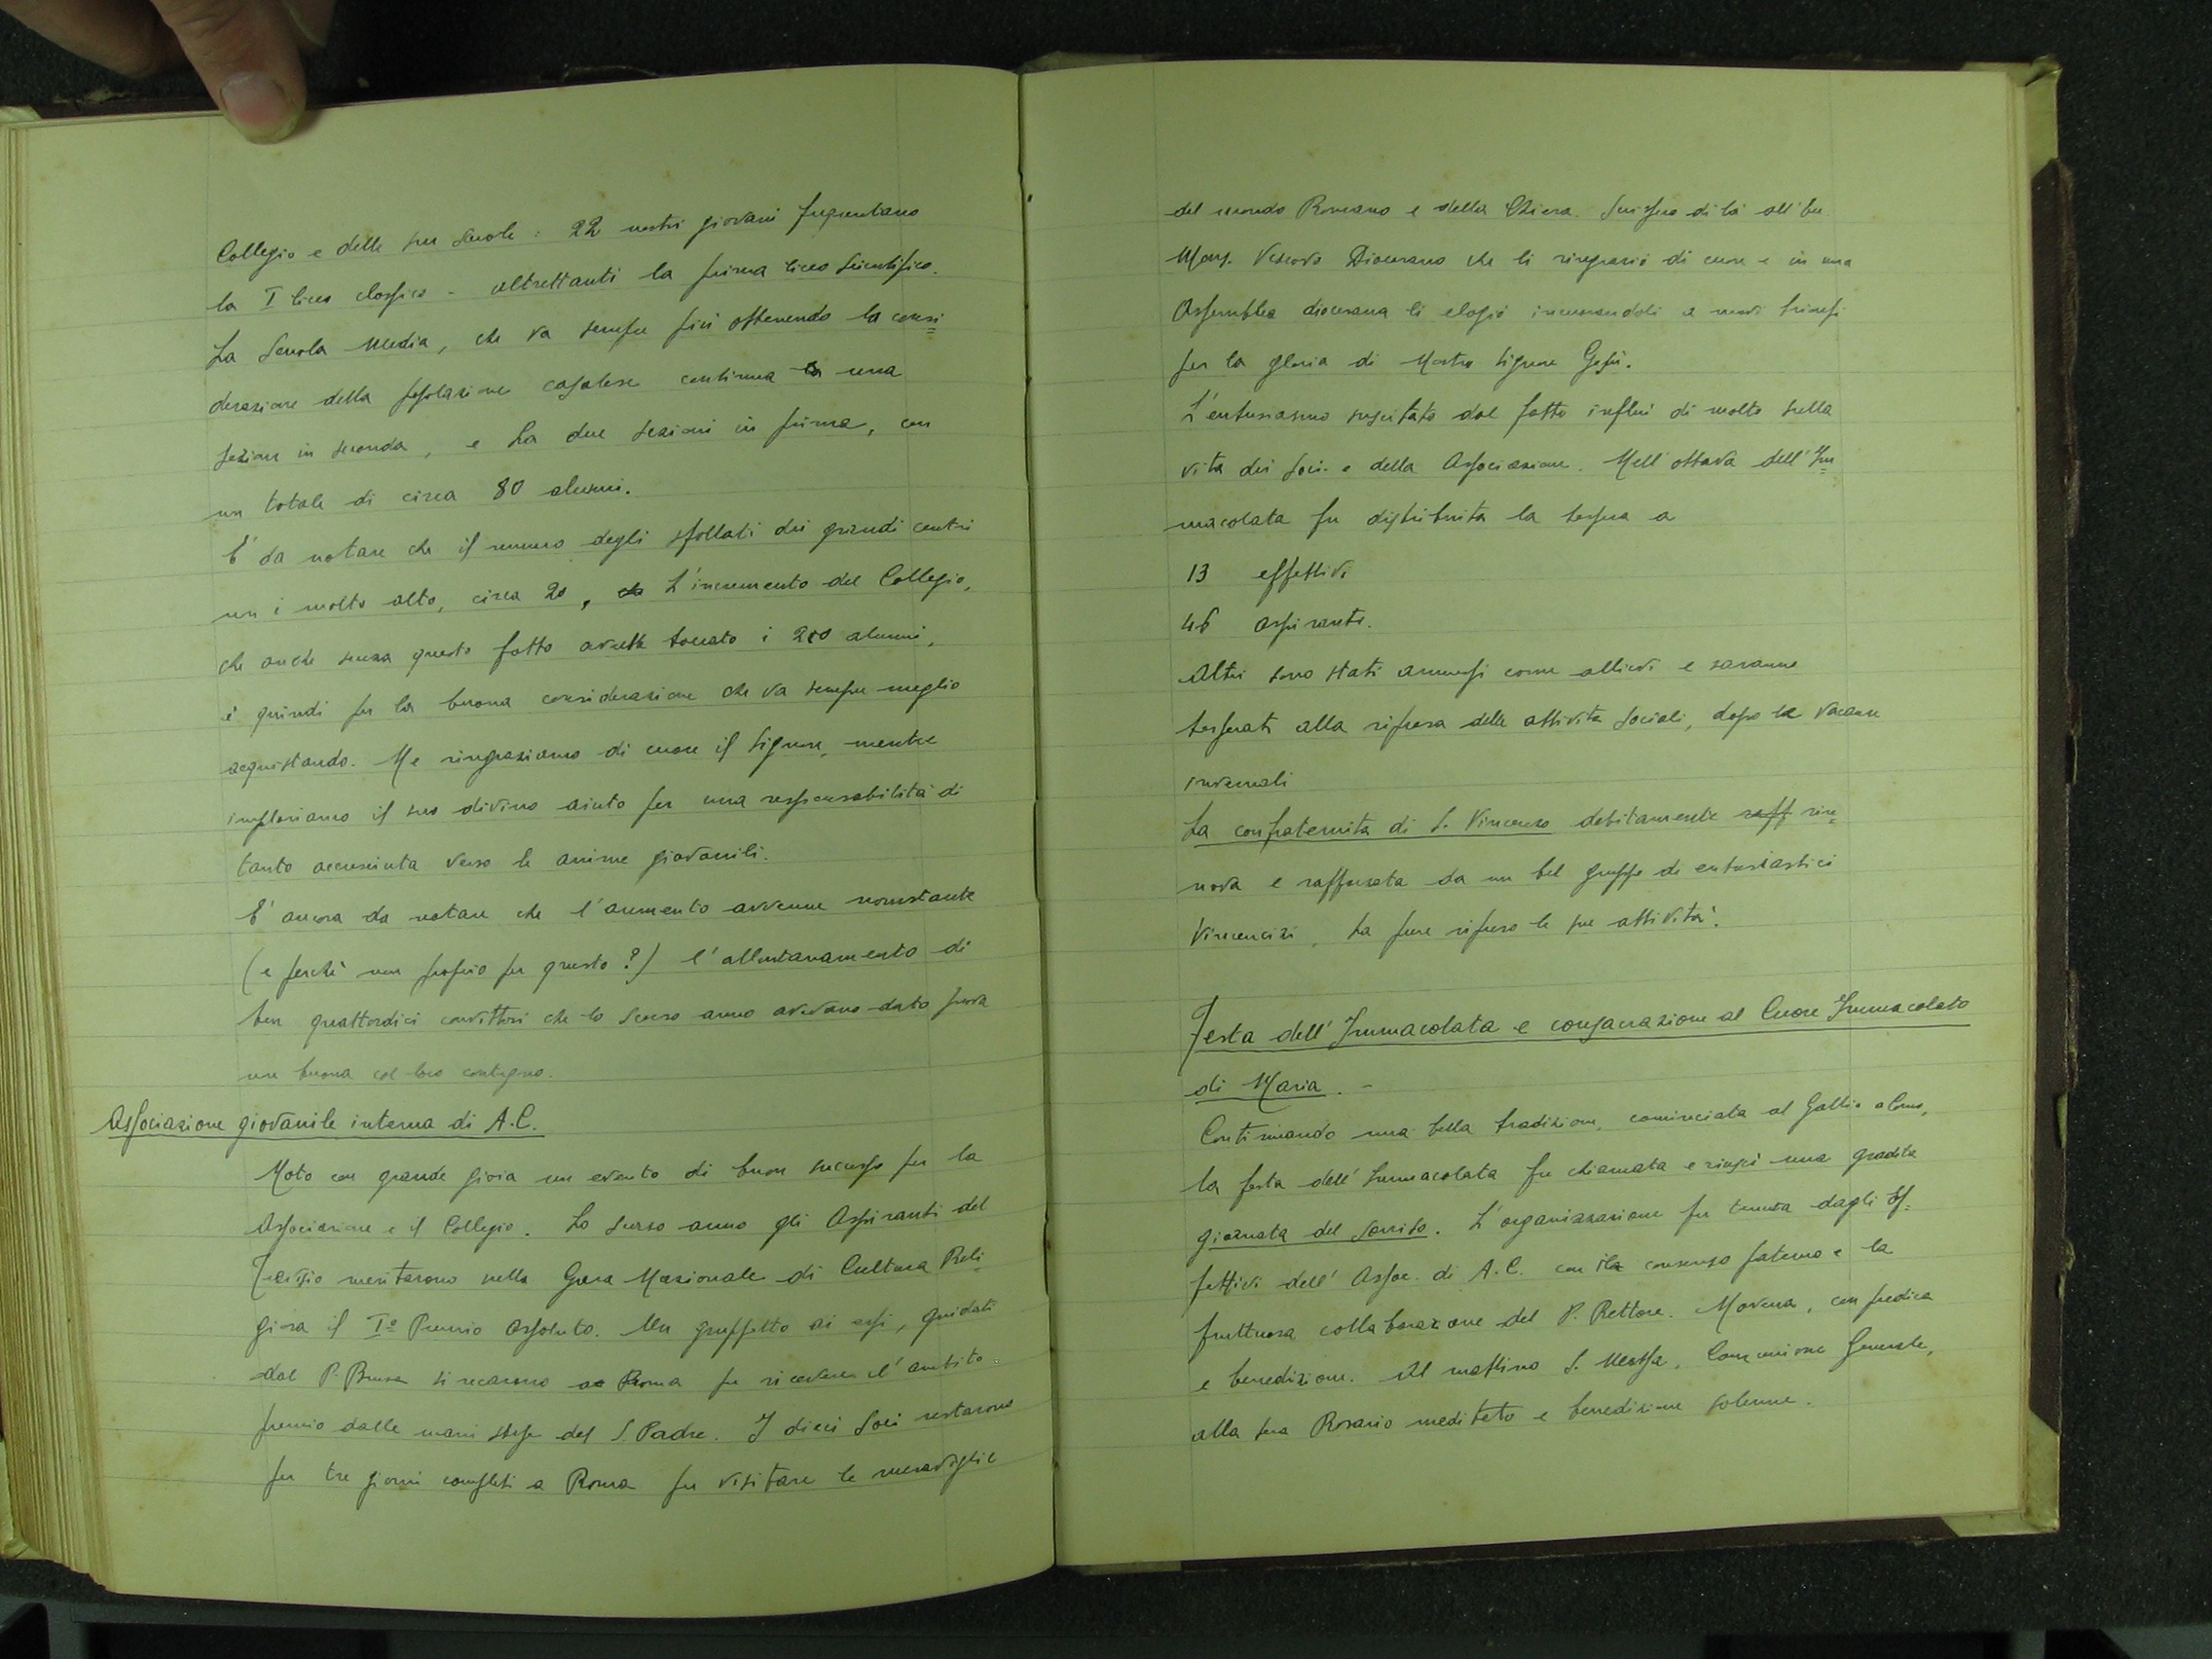 Collegio e delle sue scuole : 22 nostri giovani frequentano
la I liceo classico - altrettanti la prima liceo scientifico.
La Scuola Media, che va sempre più ottenendo la consi=
derazione della popolazione casalese continua una
sezione in seconda, e ha due sezioni in prima, con
un totale di circa 80 alunni.
E' da notare che il numero degli sfollati dei grandi centri
non è molto alto, circa 20, L'incremento del Collegio,
che anche senza questo fatto avrebbe toccato i 200 alunni,
è quindi per la buona considerazione che va sempre meglio
acquistando. Ne ringraziamo di cuore il Signore, mentre
imploriamo il suo divino aiuto per una responsabilità di
tanto accresciuta verso le anime giovanili.
E' ancora da notare che l'aumento avvenne nonostante
(e perchè non proprio per questo?) l'allontanamento di
ben quattordici convittori che lo scorso anno avevano dato prova
non buona col loro contegno.
Associazione giovanile interna di A.C.
Noto con grande gioia un evento di buon successo per la
Associazione e il Collegio. Lo scorso anno gli Aspiranti del
Trevisio meritarono nella Gara Nazionale di Cultura Reli
giosa il I° Premio assoluto. Un gruppetto di essi, guidati
dal P. Brusa si recarono a Roma per ricevere l'ambito
premio dalle mani stesse del S. Padre. I dieci Soci restarono
per tre giorni completi a Roma per visitare le meraviglie
del mondo Romano e della Chiesa. di là all'
Mons. Vescovo Diocesano che li ringraziò di cuore e in una
Assemblea diocesana li elogiò incuorandoli a nuovi trionfi
per la gloria di Nostro Signore Gesù.
L'entusiasmo suscitato dal fatto influì di molto sulla
vita dei soci e della Associazione. Nell'ottava dell'Im=
macolata fu distribuita la tessera a
13 effettivi
46 aspiranti.
Altri sono stati ammessi come allievi e saranno
tesserati alla ripresa delle attività sociali, dopo le vacanze
invernali
La confraternita di S. Vincenzo debitamente raff rin=
nova e rafforzata da un bel gruppo di entusiastici
Vincenziani, ha pure ripreso le sue attività.
Festa dell'Immacolata e consacrazione al Cuore Immacolato
di Maria. -
Continuando una bella tradizione, cominciata al Gallio a Como,
la festa dell'Immacolata fu chiamata e riuscì una gradita
giornata del sorriso. L'organizzazione fu tenuta dagli Ef=
fettivi dell'Assoc. di A.C. con il consenso paterno e la
fruttuosa collaborazione del P. Rettore. Novena, con predica
e benedizione. Al mattino S. Messa, Comunione Generale,
alla sera Rosario meditato e benedizione solenne.